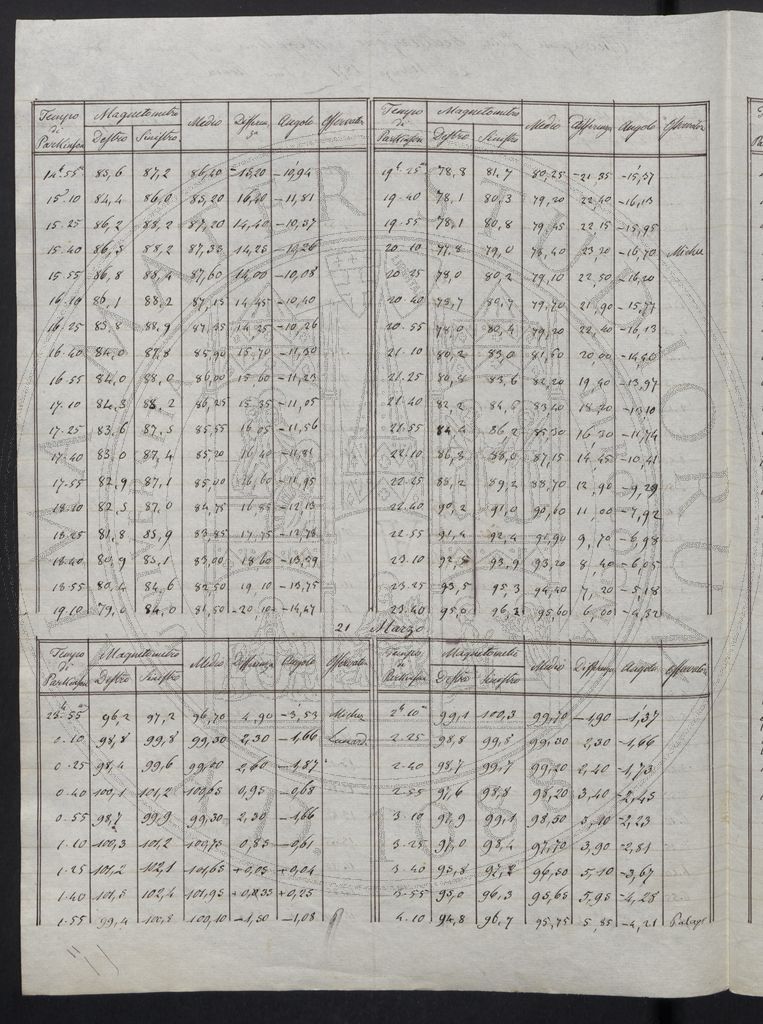 Tempo di Parkinson Magnetometro Destro Sinistro Medio Differenza Angolo Osservator
14h.55m 83,6 87,2 86,40 -15,20 -10,94
15.10 84,4 86,0 85,20 16,40 -11,81
15.25 86,2 88,2 87,20 14,40 -10,37
15.40 86,5 88,2 87,35 14,25 -10,26
15.55 86,8 88,4 87,60 14,00 -10,08
16.10 86,1 88,2 87,15 14,45 -10,40
16.25 85,8 88,9 87,35 14,25 -10,26
16.40 84,0 87,8 85,90 15,70 -11,30
16.55 84,0 88,0 86,00 15,60 -11,23
17.10 84,3 88,2 86,25 15,35 -11,05
17.25 83,6 87,5 85,55 16,05 -11,56
17.40 83,0 87,4 85,20 16,40 -11,81
17.55 82,9 87,1 85,00 16,60 -11,95
18.10 82,5 87,0 84,75 16,85 -12,13
18.25 81,8 85,9 83,85 17,75 -12,78
18.40 80,9 85,1 83,00 18,60 -13,39
18.55 80,4 84,6 82,50 19,10 -13,75
19.10 79,0 84,0 81,50 -20,10 -14,47
Tempo di Parkinson Magnetometro Destro Sinistro Medio Differenza Angolo Osservator
19h.25m 78,8 81,7 80,25 -21,35 -15,37
19.40 78,1 80,3 79,20 22,40 -16,13
19.55 78,1 80,8 79,45 22,15 -15,95
20.10 77,8 79,0 78,40 23,20 -16,70 Michez
20.25 78,0 80,2 79,10 22,50 -16,20
20.40 78,7 80,7 79,70 21,90 -15,77
20.55 78,0 80,4 79,20 22,40 -16,13
21.10 80,2 83,0 81,60 20,00 -14,40
21.25 80,8 83,6 82,20 19,40 -13,97
21.40 82,2 84,6 83,40 18,20 -13,10
21.55 84,4 86,2 85,30 16,30 -11,74
22.10 86,3 88,0 87,15 14,45 -10,41
22.25 88,2 89,2 88,70 12,90 -9,29
22.40 90,2 91,0 90,60 11,00 -7,92
22.55 91,4 92,4 91,90 9,70 -6,98
23.10 92,5 93,9 93,20 8,40 -6,05
23.25 93,5 95,3 94,40 7,20 -5,18
23.40 95,0 96,2 95,60 6,00 -4,32
21 Marzo
Tempo di Parkinson Magnetometro Destro Sinistro Medio Differenza Angolo Osservator
23h.55m 96,2 97,2 96,70 4,90 -3,53 Michez
0.10 98,8 99,8 99,30 2,30 -1,66
0.25 98,4 99,6 99,00 2,60 -1,87
0.40 100,1 101,2 100,65 0,95 -0,68
0.55 98,7 99,9 99,30 2,30 -1,66
1.10 100,3 101,2 100,75 0,85 -0,61
1.25 101,2 102,1 101,65 +0,05 +0,04
1.40 101,5 102,4 101,95 +0,35 +0,25
1.55 99,4 100,8 100,10 -1,50 -1,08
Tempo di Parkinson Magnetometro Destro Sinistro Medio Differenza Angolo Osservator
2h.10m 99,1 100,3 99,70 -1,90 -1,37
2.25 98,8 99,8 99,30 2,30 -1,66
2.40 98,7 99,7 99,20 2,40 -1,73
2.55 97,6 98,8 98,20 3,40 -2,45
3.10 97,9 99,1 98,50 3,10 -2,23
3.25 97,0 98,4 97,70 3,90 -2,81
3.40 95,8 97,2 96,50 5,10 -3,67
3.55 95,0 96,3 95,65 5,95 -4,28
4.10 94,8 96,7 95,75 5,85 -4,21